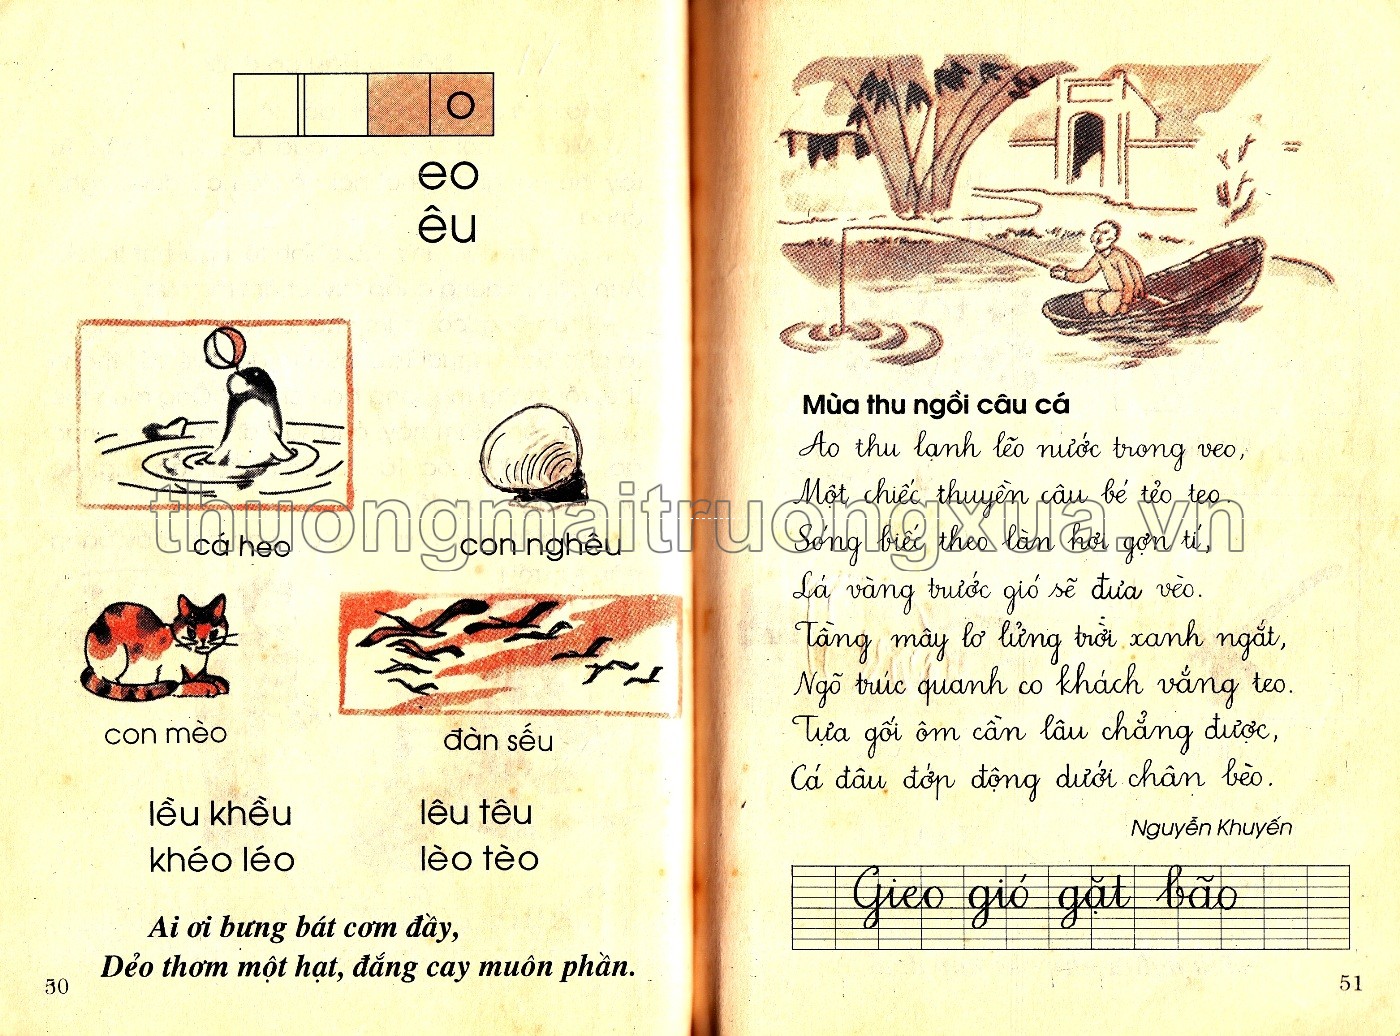 o
eo
êu
cá heo
con nghêu
con mèo
đàn sếu
lều khều
lêu têu
khéo léo
lèo tèo
Ai ơi bưng bát cơm đầy,
Dẻo thơm một hạt, đắng cay muôn phần.
50
Mùa thu ngồi câu cá
Ao thu lạnh lẽo nước trong veo,
Một chiếc thuyền câu bé tẻo teo.
Sóng biếc theo làn hơi gợn tí,
Lá vàng trước gió sẽ đưa vèo.
Tầng mây lơ lửng trời xanh ngắt,
Ngõ trúc quanh co khách vắng teo.
Tựa gối ôm cần lâu chẳng được,
Cá đâu đớp động dưới chân bèo.
Nguyễn Khuyến
Gieo gió gặt bão
51
thuongmaitruongxua.vn